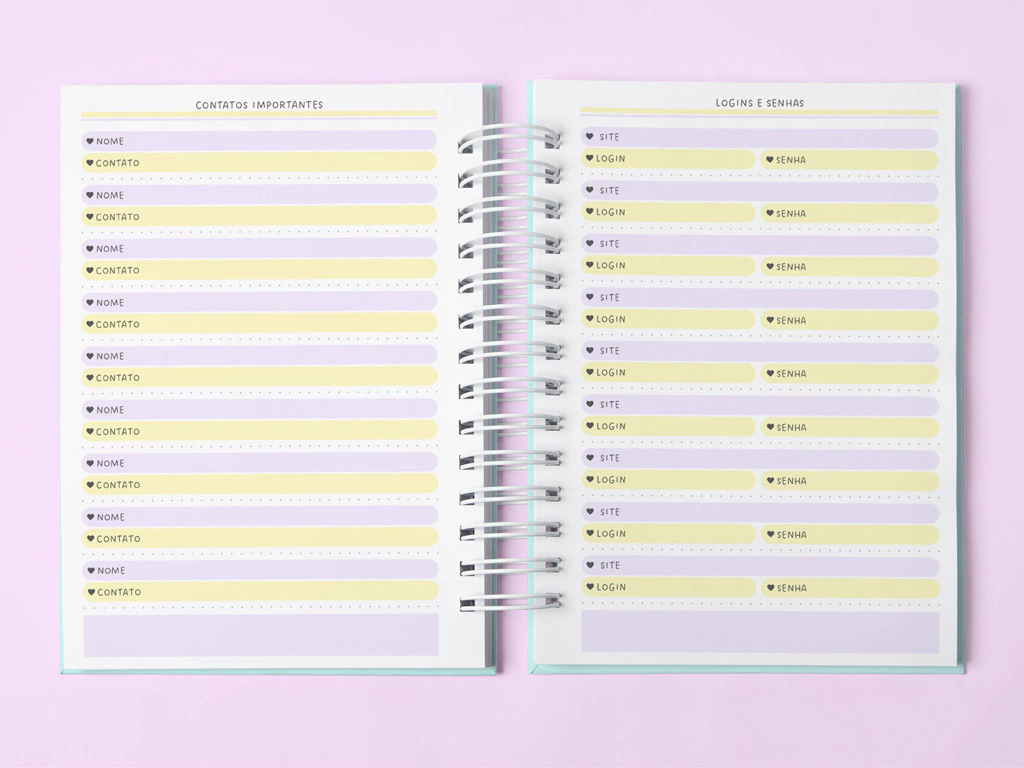 CONTATOS IMPORTANTES
NOME
CONTATO
NOME
CONTATO
NOME
CONTATO
NOME
CONTATO
NOME
CONTATO
NOME
CONTATO
NOME
CONTATO
NOME
CONTATO
NOME
CONTATO
LOGINS E SENHAS
SITE
LOGIN SENHA
SITE
LOGIN SENHA
SITE
LOGIN SENHA
SITE
LOGIN SENHA
SITE
LOGIN SENHA
SITE
LOGIN SENHA
SITE
LOGIN SENHA
SITE
LOGIN SENHA
SITE
LOGIN SENHA